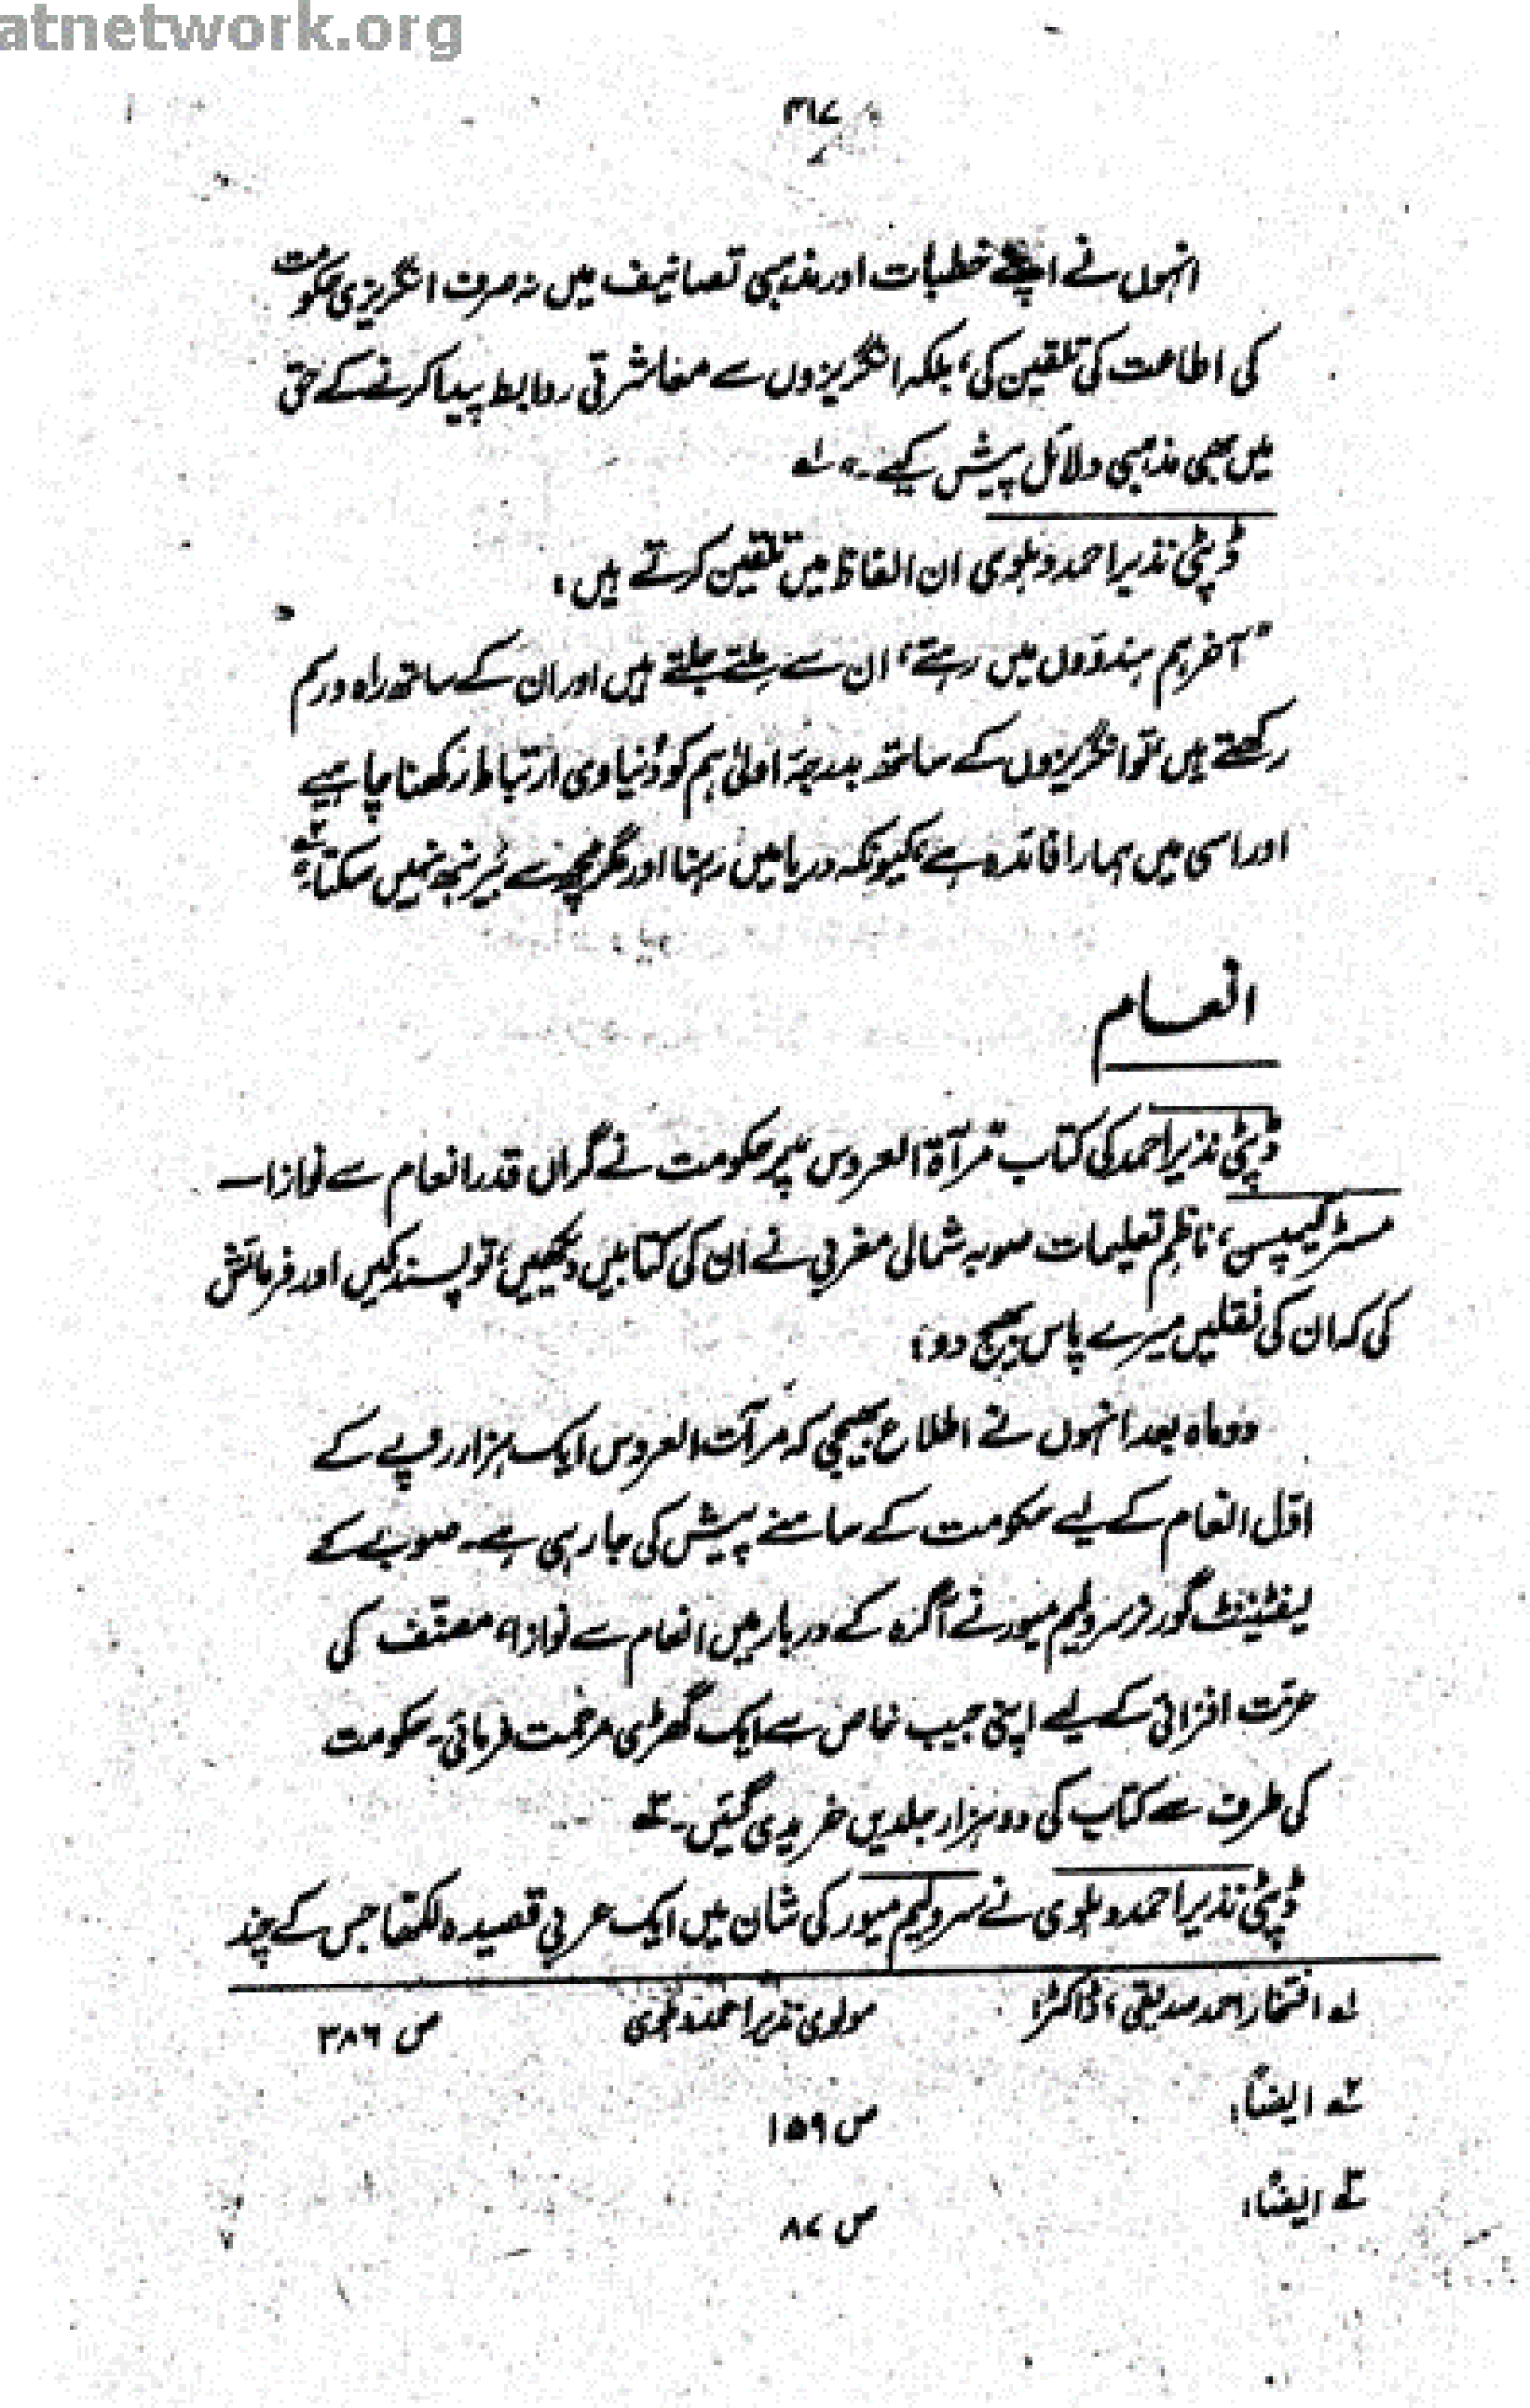 atnetwork.org
۳۱۷
انہوں نے اپنے خطبات اور مذہبی تصانیف میں نہ صرف انگریزی حکومت
کی اطاعت کی تلقین کی، بلکہ انگریزوں سے معاشرتی روابط پیدا کرنے کے حق
میں بھی مذہبی دلائل پیش کیے۔" لہ
ڈپٹی نذیر احمد دہلوی ان الفاظ میں تلقین کرتے ہیں:
"آخر ہم ہندوؤں میں رہتے، ان سے ملتے جلتے ہیں اور ان کے ساتھ راہ و رسم
رکھتے ہیں تو انگریزوں کے ساتھ بدرجۂ اولیٰ ہم کو دُنیاوی ارتباط رکھنا چاہیے
اور اسی میں ہمارا فائدہ ہے، کیونکہ دریا میں رہنا اور مگرمچھ سے بَیر نبھ نہیں سکتا۔" ۲ہ
انعام
ڈپٹی نذیر احمد کی کتاب مرآۃ العروس پر حکومت نے گراں قدر انعام سے نوازا۔
مسٹر کیمپسن، ناظم تعلیمات صوبہ شمالی مغربی نے ان کی کتابیں دیکھیں، تو پسند کیں اور فرمائش
کی کہ ان کی نقلیں میرے پاس بھیج دو؛
دو ماہ بعد انہوں نے اطلاع بھیجی کہ مرآت العروس ایک ہزار روپے کے
اوّل انعام کے لیے حکومت کے سامنے پیش کی جا رہی ہے۔ صوبے کے
لیفٹیننٹ گورنر سر ولیم میور نے آگرہ کے دربار میں انعام سے نوازا، مصنّف کی
عزت افزائی کے لیے اپنی جیب خاص سے ایک گھڑی مرحمت فرمائی۔ حکومت
کی طرف سے کتاب کی دو ہزار جلدیں خریدی گئیں۔ ۳ہ
ڈپٹی نذیر احمد دہلوی نے سر ولیم میور کی شان میں ایک عربی قصیدہ لکھا جس کے چند
لہ افتخار احمد صدیقی، ڈاکٹر: مولوی نذیر احمد دہلوی ص ۳۸۶
۲ہ ایضاً: ص ۱۵۹
۳ہ ایضاً: ص ۸۷